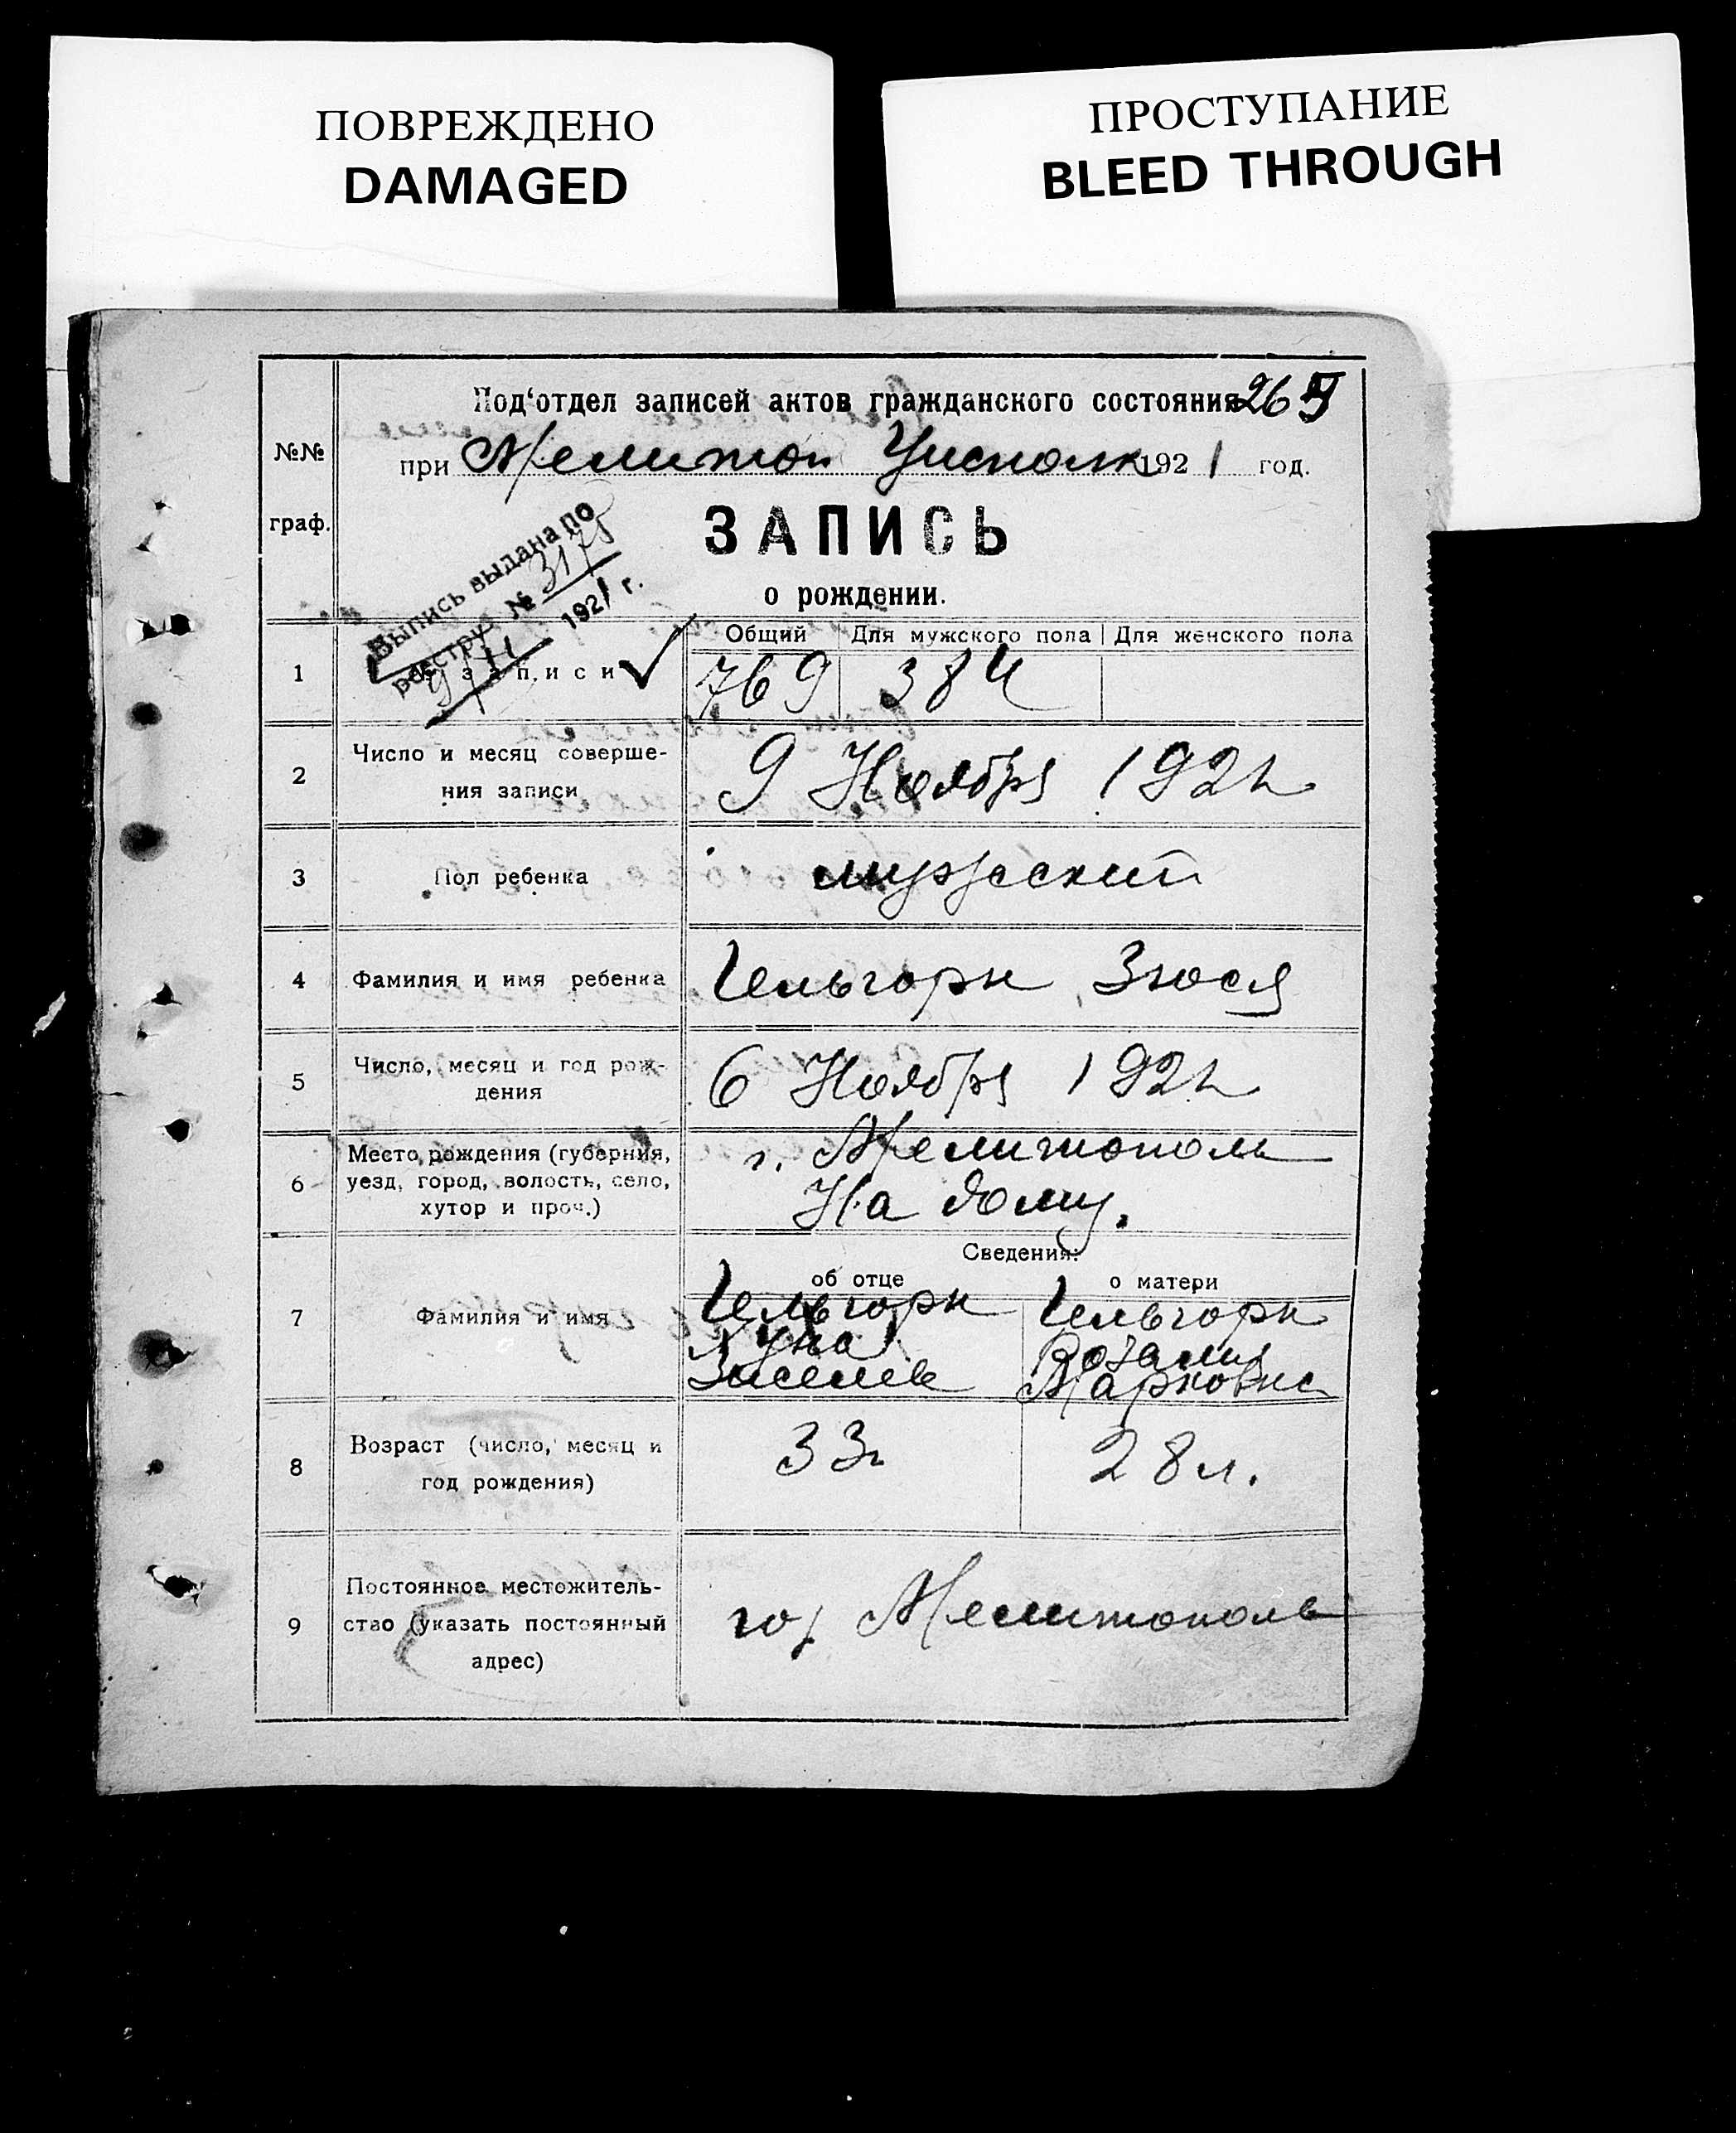 ПОВРЕЖДЕНО
DAMAGED
ПРОСТУПАНИЕ
BLEED THROUGH
Под‘отдел записей актов гражданского состояния
№№
граф.
при Мелитоп Уисполк 1921 год.
ЗАПИСЬ
о рождении.
Выпись выдана по
реестру № 3175
9/XI 1921 г.
Общий Для мужского пола Для женского пола
1 записи 769 384
2 Число и месяц соверше-
ния записи
9 Ноября 1921
3 Пол ребенка мужеский
4 Фамилия и имя ребенка Гельгорн Зюся
5 Число, месяц и год рож-
дения
6 Ноября 1921
6 Место рождения (губерния,
уезд, город, волость, село,
хутор и проч.)
г. Мелитополь
На дому.
Сведения:
об отце о матери
7 Фамилия и имя
Гельгорн Гельгорн
Розалия
Марковна
8 Возраст (число, месяц и
год рождения)
33 28 л.
9 Постоянное местожитель-
ство (указать постоянный
адрес)
гор Мелитополь